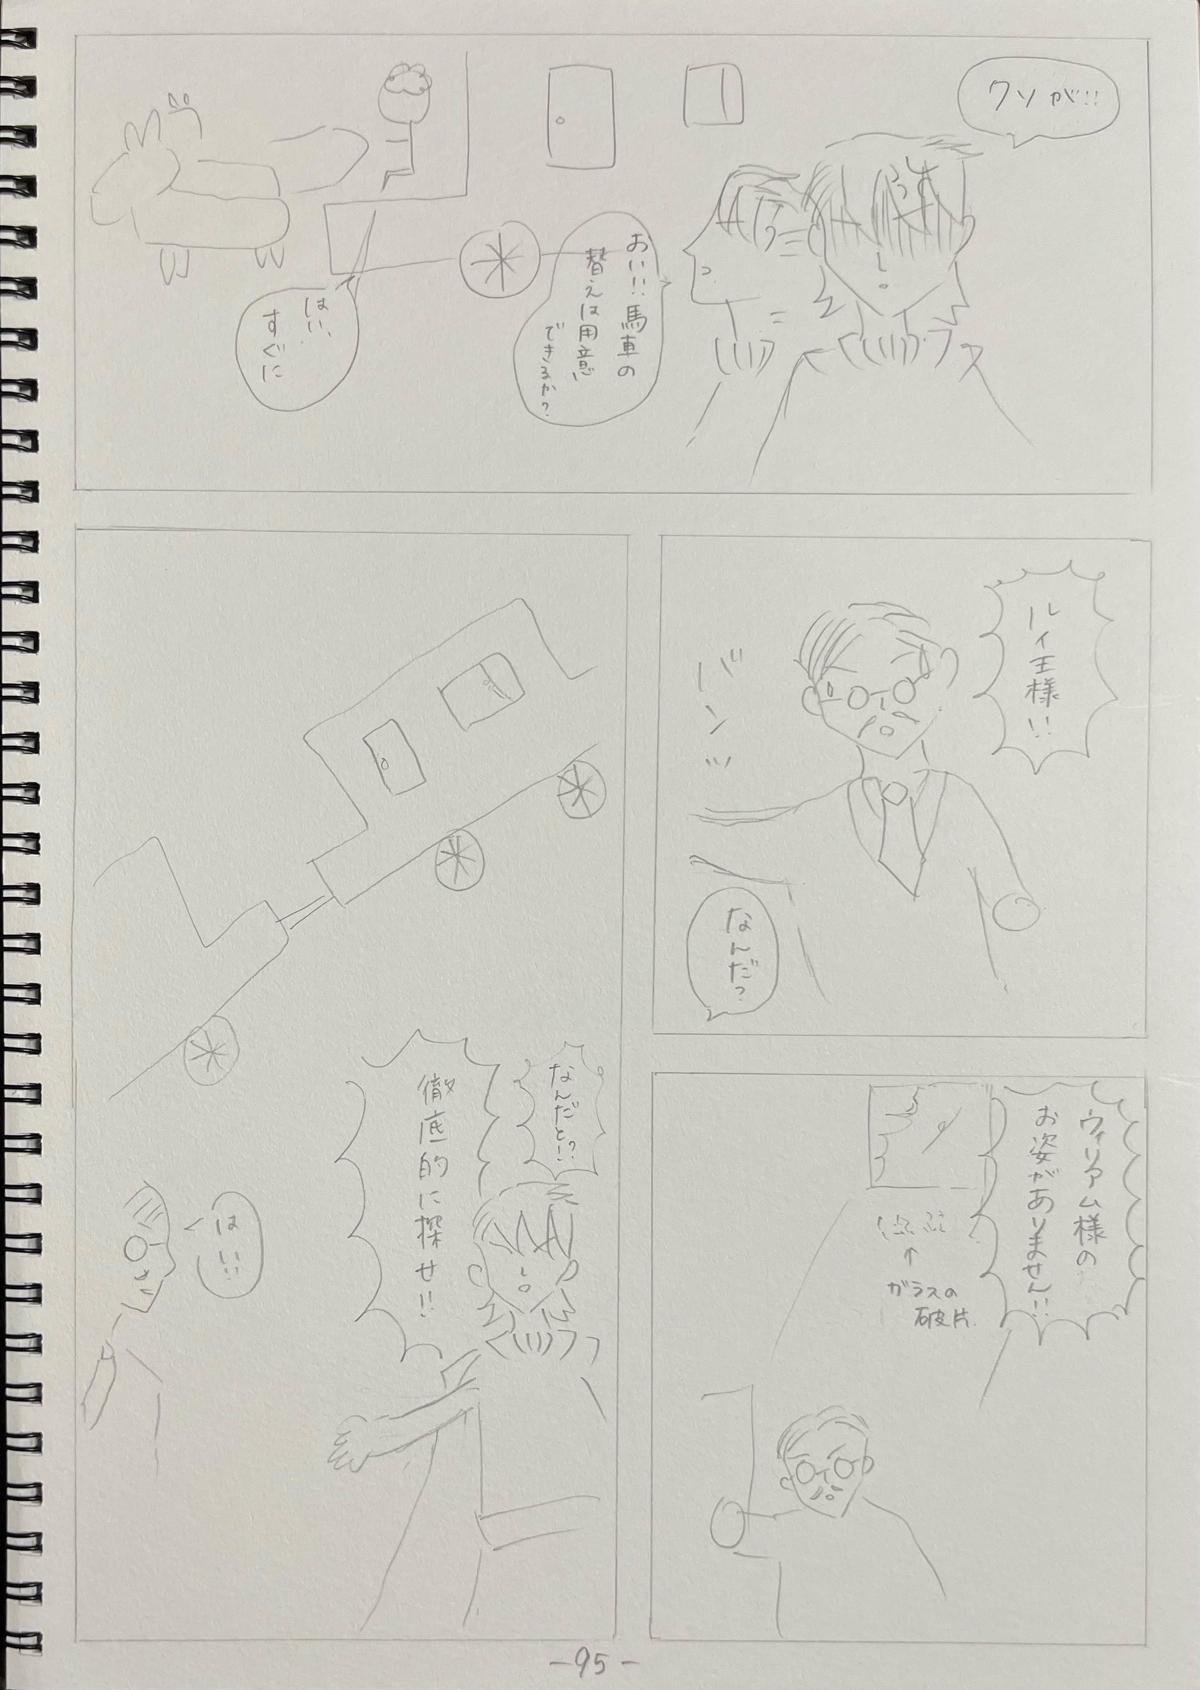 クソが!!
おい!!馬車の
替えは用意
できるか?
はい、
すぐに
ルイ王様!!
バンッ
なんだ?
ウィリアム様の
お姿がありません!!
ガラスの
破片
なんだと!?
徹底的に探せ!!
はい!!
-95-